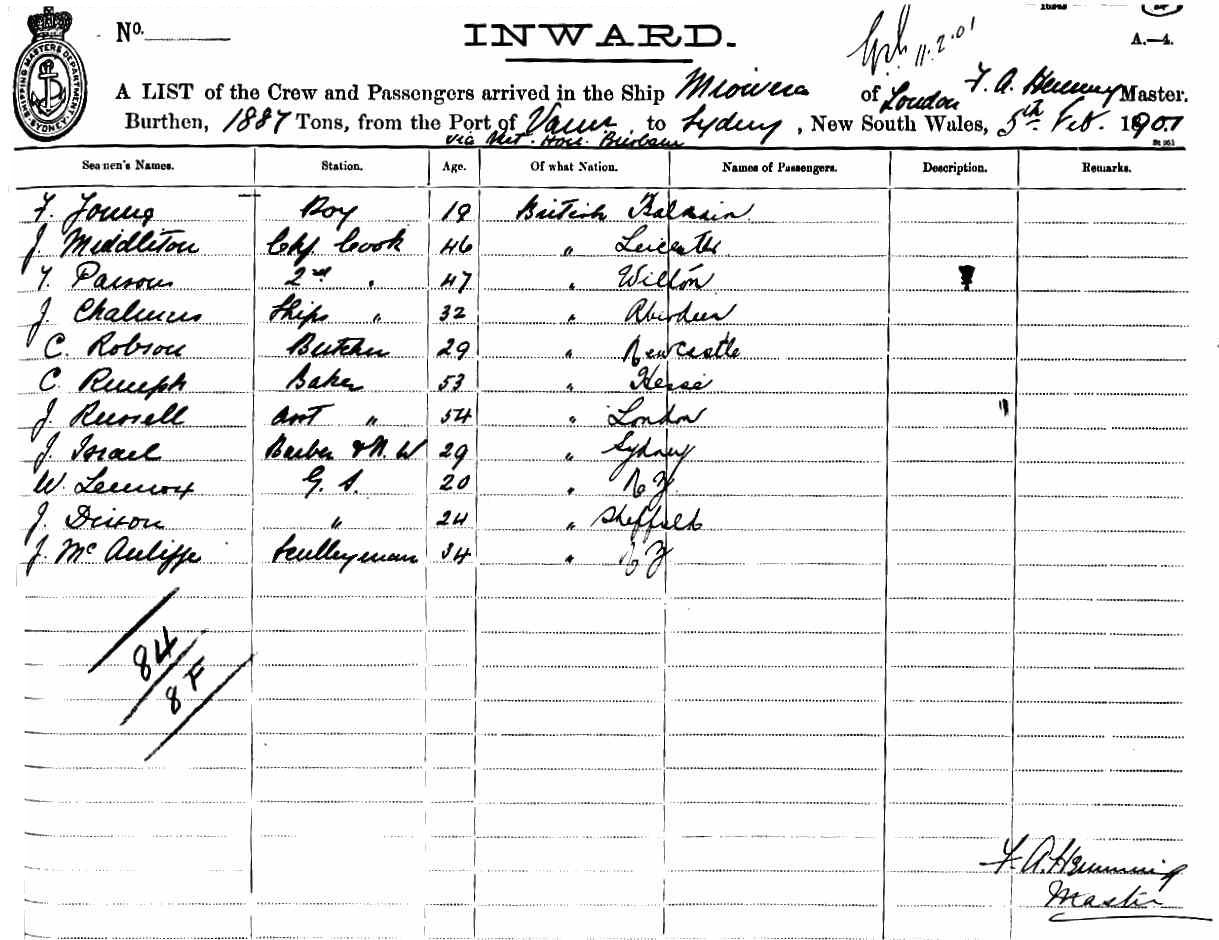 No.
INWARD.
11.2.01
A.—4.
SHIPPING MASTERS DEPARTMENT. SYDNEY.
A LIST of the Crew and Passengers arrived in the Ship Miowera of London F. A. Hemming Master.
Burthen, 1887 Tons, from the Port of Vancr. to Sydney, New South Wales, 5th Feb. 1901
via Brisbane
Seamen's Names. Station. Age. Of what Nation. Names of Passengers. Description. Remarks.
F. Young Boy 18 British Balmain
J. Middleton Chf Cook 46 " Leicester
T. Parsons 2nd " 47 " Wilton
J. Chalmers Ships " 32 " Aberdeen
C. Robson Butcher 29 " Newcastle
C. Rumph Baker 53 " Hesse
J. Russell Asst " 54 " London
J. Israel Barber & N. W 29 " Sydney
W. Lennox G. S. 20 " N Z
J. Dixon " 24 " Sheffield
J. McAuliffe Sculleyman 34 " N Z
84
8 F
F. A. Hemming
Master